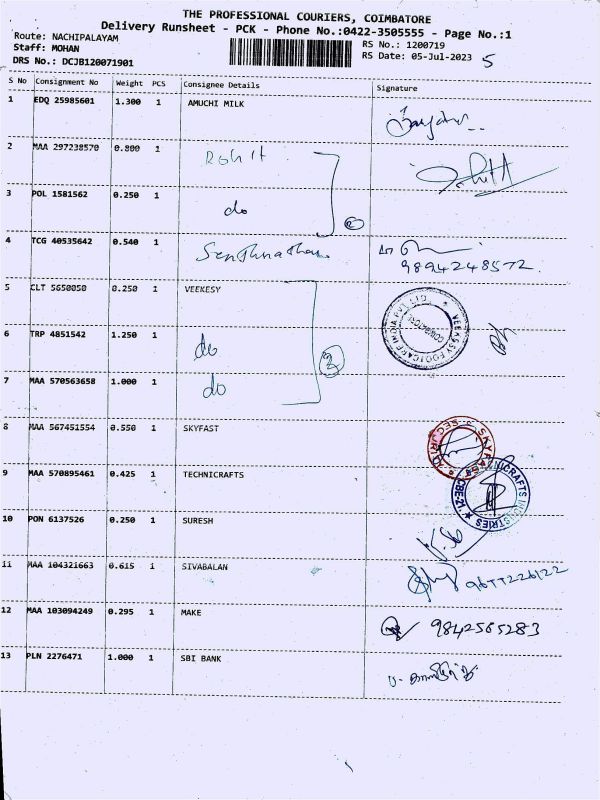 THE PROFESSIONAL COURIERS, COIMBATORE
Delivery Runsheet - PCK - Phone No.:0422-3505555 - Page No.:1
Route: NACHIPALAYAM
RS No.: 1200719
Staff: MOHAN
RS Date: 05-Jul-2023 5
DRS No.: DCJB120071901
S No Consignment No Weight PCS Consignee Details Signature
1 EDQ 25985601 1.300 1 AMUCHI MILK
2 MAA 297238570 0.800 1 Rohit
3 POL 1581562 0.250 1 do
4 TCG 40535642 0.540 1
9894248572
5 CLT 5650050 0.250 1 VEEKESY
VEEKESY FOOTCARE INDIA PVT. LTD.
COIMBATORE
6 TRP 4851542 1.250 1 do
7 MAA 570563658 1.000 1 do
8 MAA 567451554 0.550 1 SKYFAST
SKYFAST
9 MAA 570895461 0.425 1 TECHNICRAFTS
INDUSTRIES
10 PON 6137526 0.250 1 SURESH
11 MAA 104321663 0.615 1 SIVABALAN 9677226122
12 MAA 103094249 0.295 1 MAKE 9842565283
13 PLN 2276471 1.000 1 SBI BANK